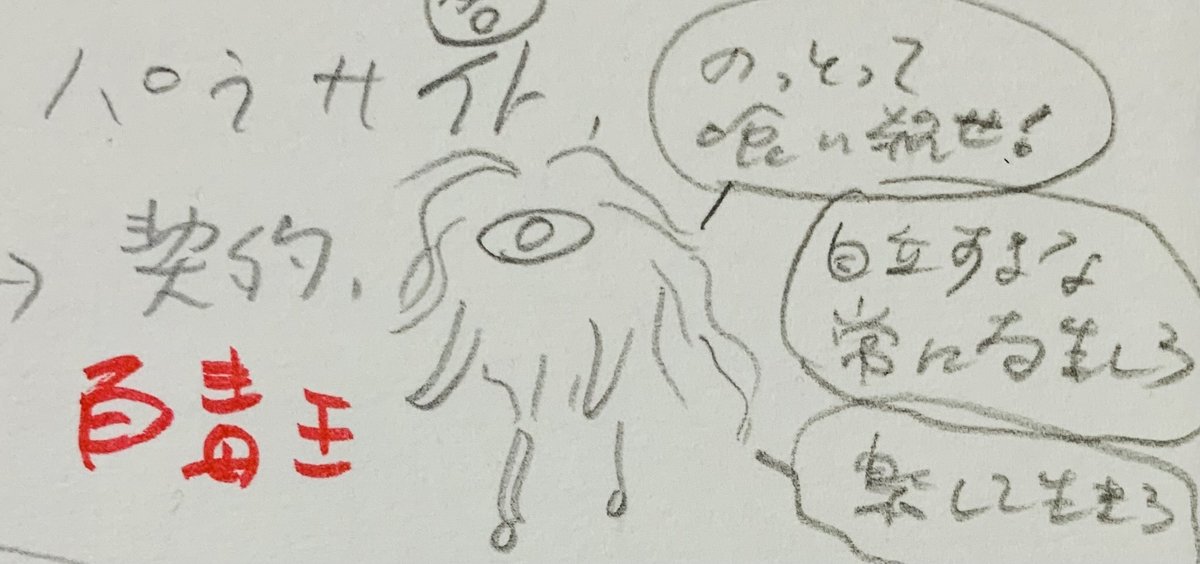 パラサイト、
→ 契約.
百毒王
のっとって
喰い殺せ!
自立するな
常に寄生しろ
楽して生きろ